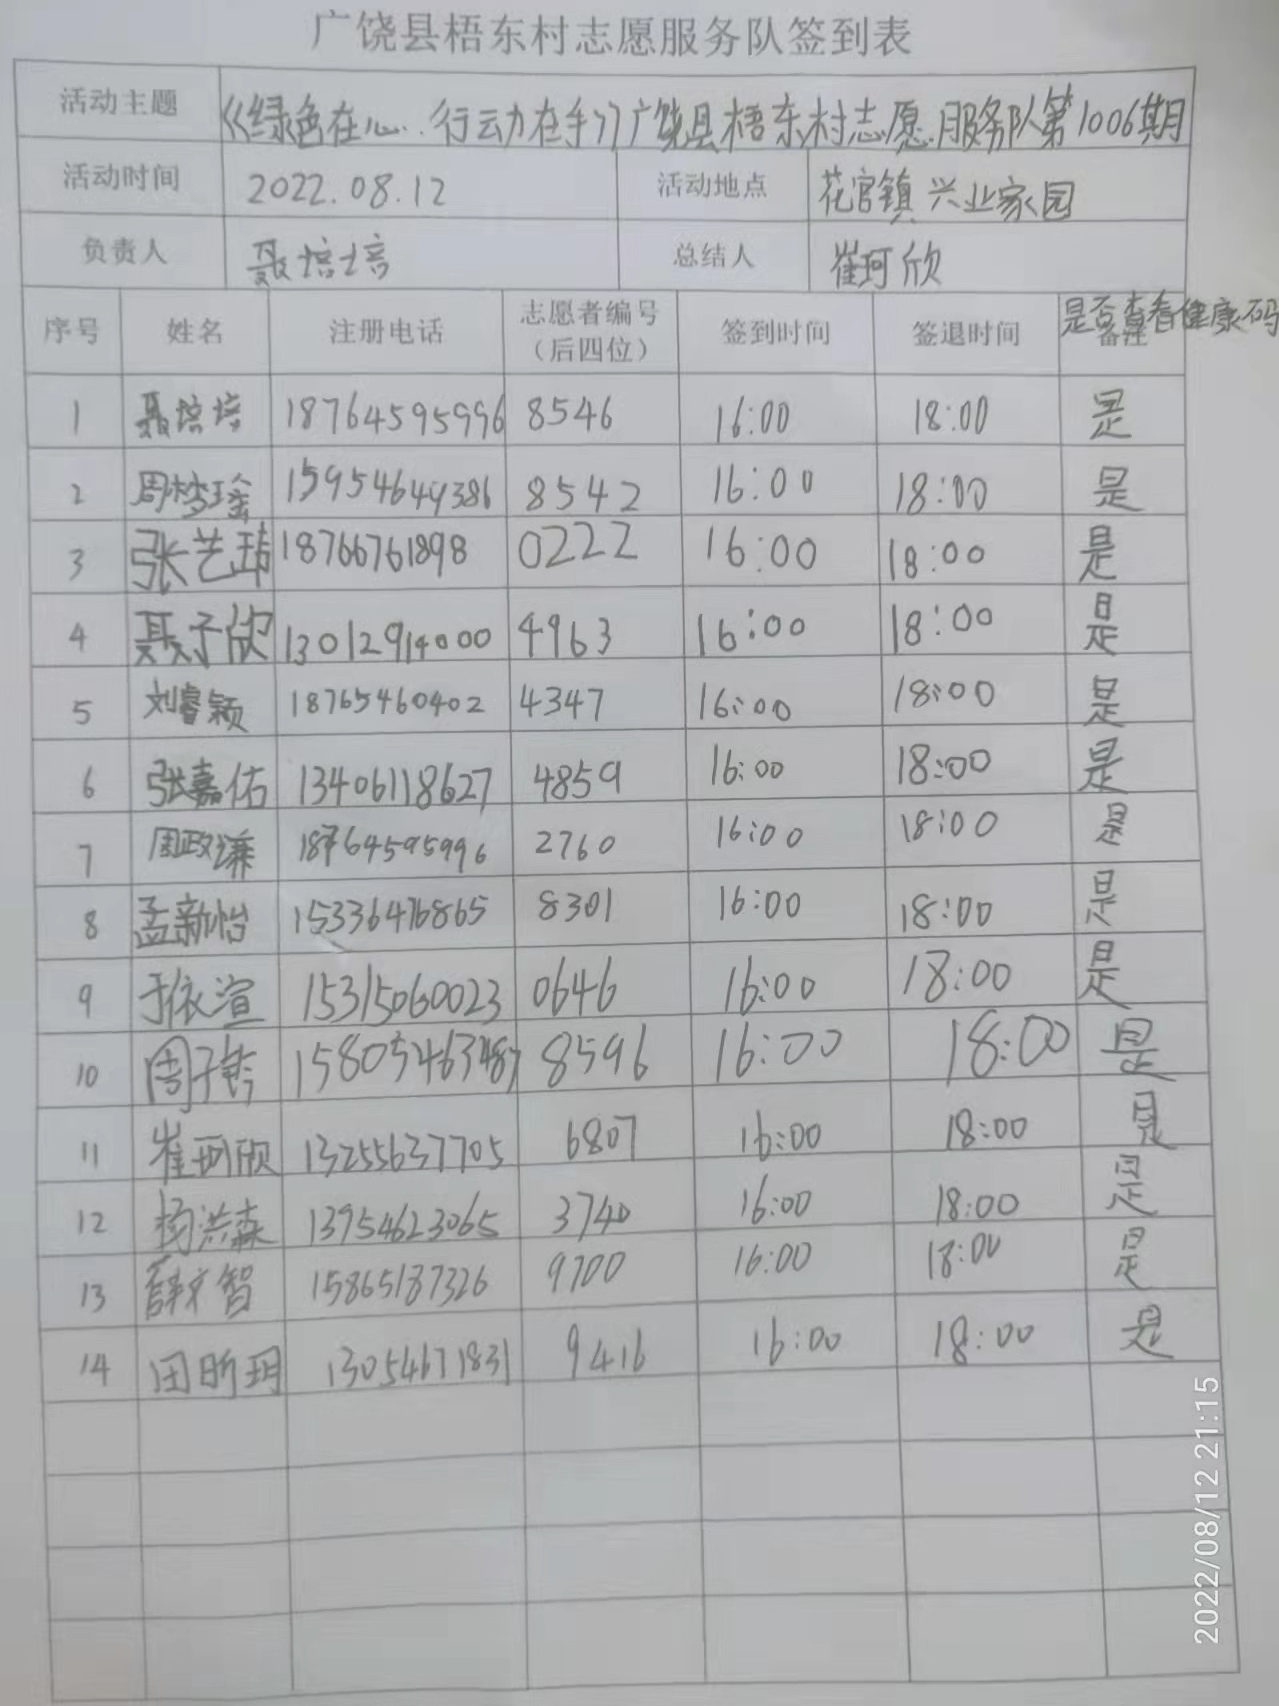 广饶县梧东村志愿服务队签到表
活动主题 《绿色在心..行动在手》广饶县梧东村志愿服务队第1006期
活动时间 2022.08.12 活动地点 花官镇兴业家园
负责人 聂培培 总结人 崔珂欣
序号 姓名 注册电话 志愿者编号（后四位） 签到时间 签退时间 备注 是否查看健康码
1 聂培培 18764595996 8546 16:00 18:00 是
2 周梦瑶 15954644386 8542 16:00 18:00 是
3 张艺玮 18766761898 0222 16:00 18:00 是
4 聂子欣 13012914000 4963 16:00 18:00 是
5 刘睿颖 18765460402 4347 16:00 18:00 是
6 张嘉佑 13406118627 4859 16:00 18:00 是
7 周政谦 18764595996 2760 16:00 18:00 是
8 孟新怡 15336476865 8301 16:00 18:00 是
9 于依渲 15315060023 0646 16:00 18:00 是
10 周子铃 15805463487 8596 16:00 18:00 是
11 崔珂欣 13255637705 6807 16:00 18:00 是
12 杨洪森 13954623065 3740 16:00 18:00 是
13 薛文智 15865187326 9700 16:00 18:00 是
14 田昕玥 13054671831 9416 16:00 18:00 是
2022/08/12 21:15